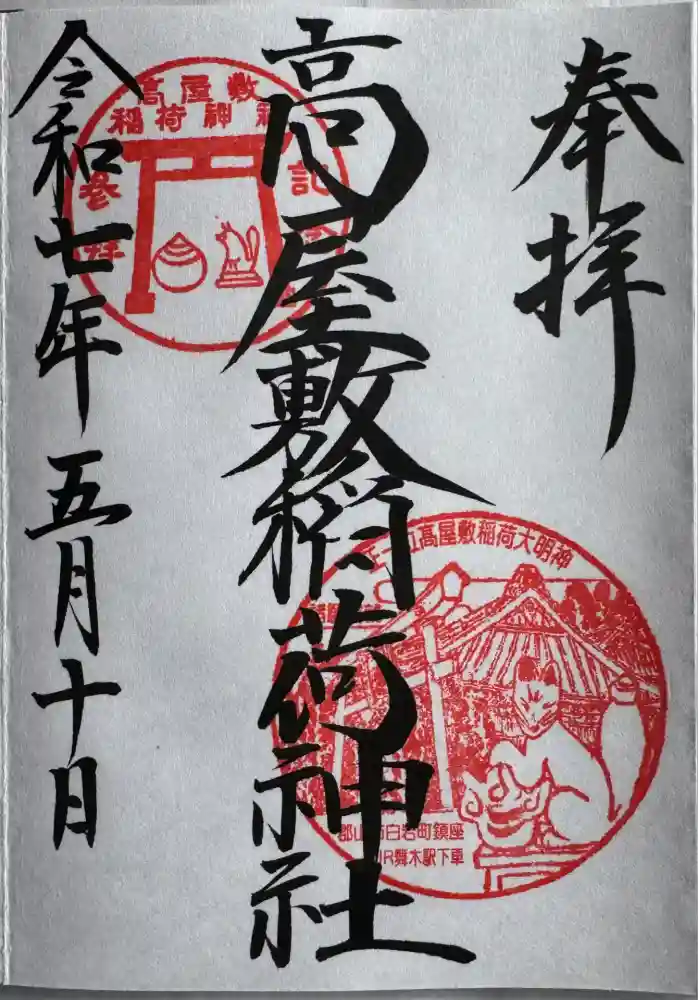 奉拝
高屋敷稲荷神社
令和七年五月十日
高屋敷
稲荷神社
参拝
記念
正一位高屋敷稲荷大明神
郡山市白岩町鎮座
JR舞木駅下車